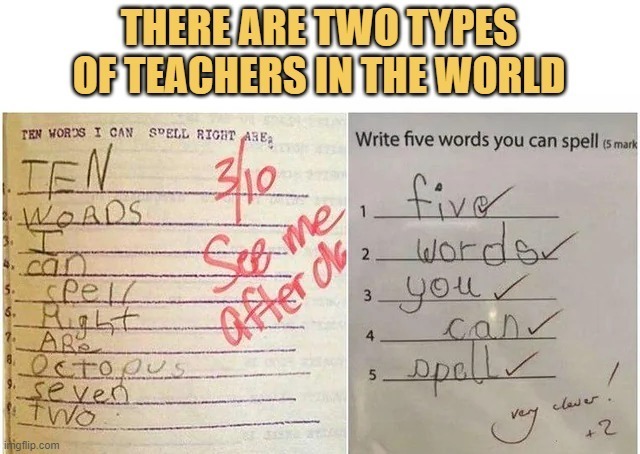 THERE ARE TWO TYPES
OF TEACHERS IN THE WORLD
TEN WORDS I CAN SPELL RIGHT ARE:
1. TEN
2. WORDS
3. I
4. can
5. spell
6. Right
7. ARe
8. octopus
9. seven
two
3/10
See me
after
Write five words you can spell (5 mark
1 five
2 words
3 you
4 can
5 spell
very clever!
+2
imgflip.com